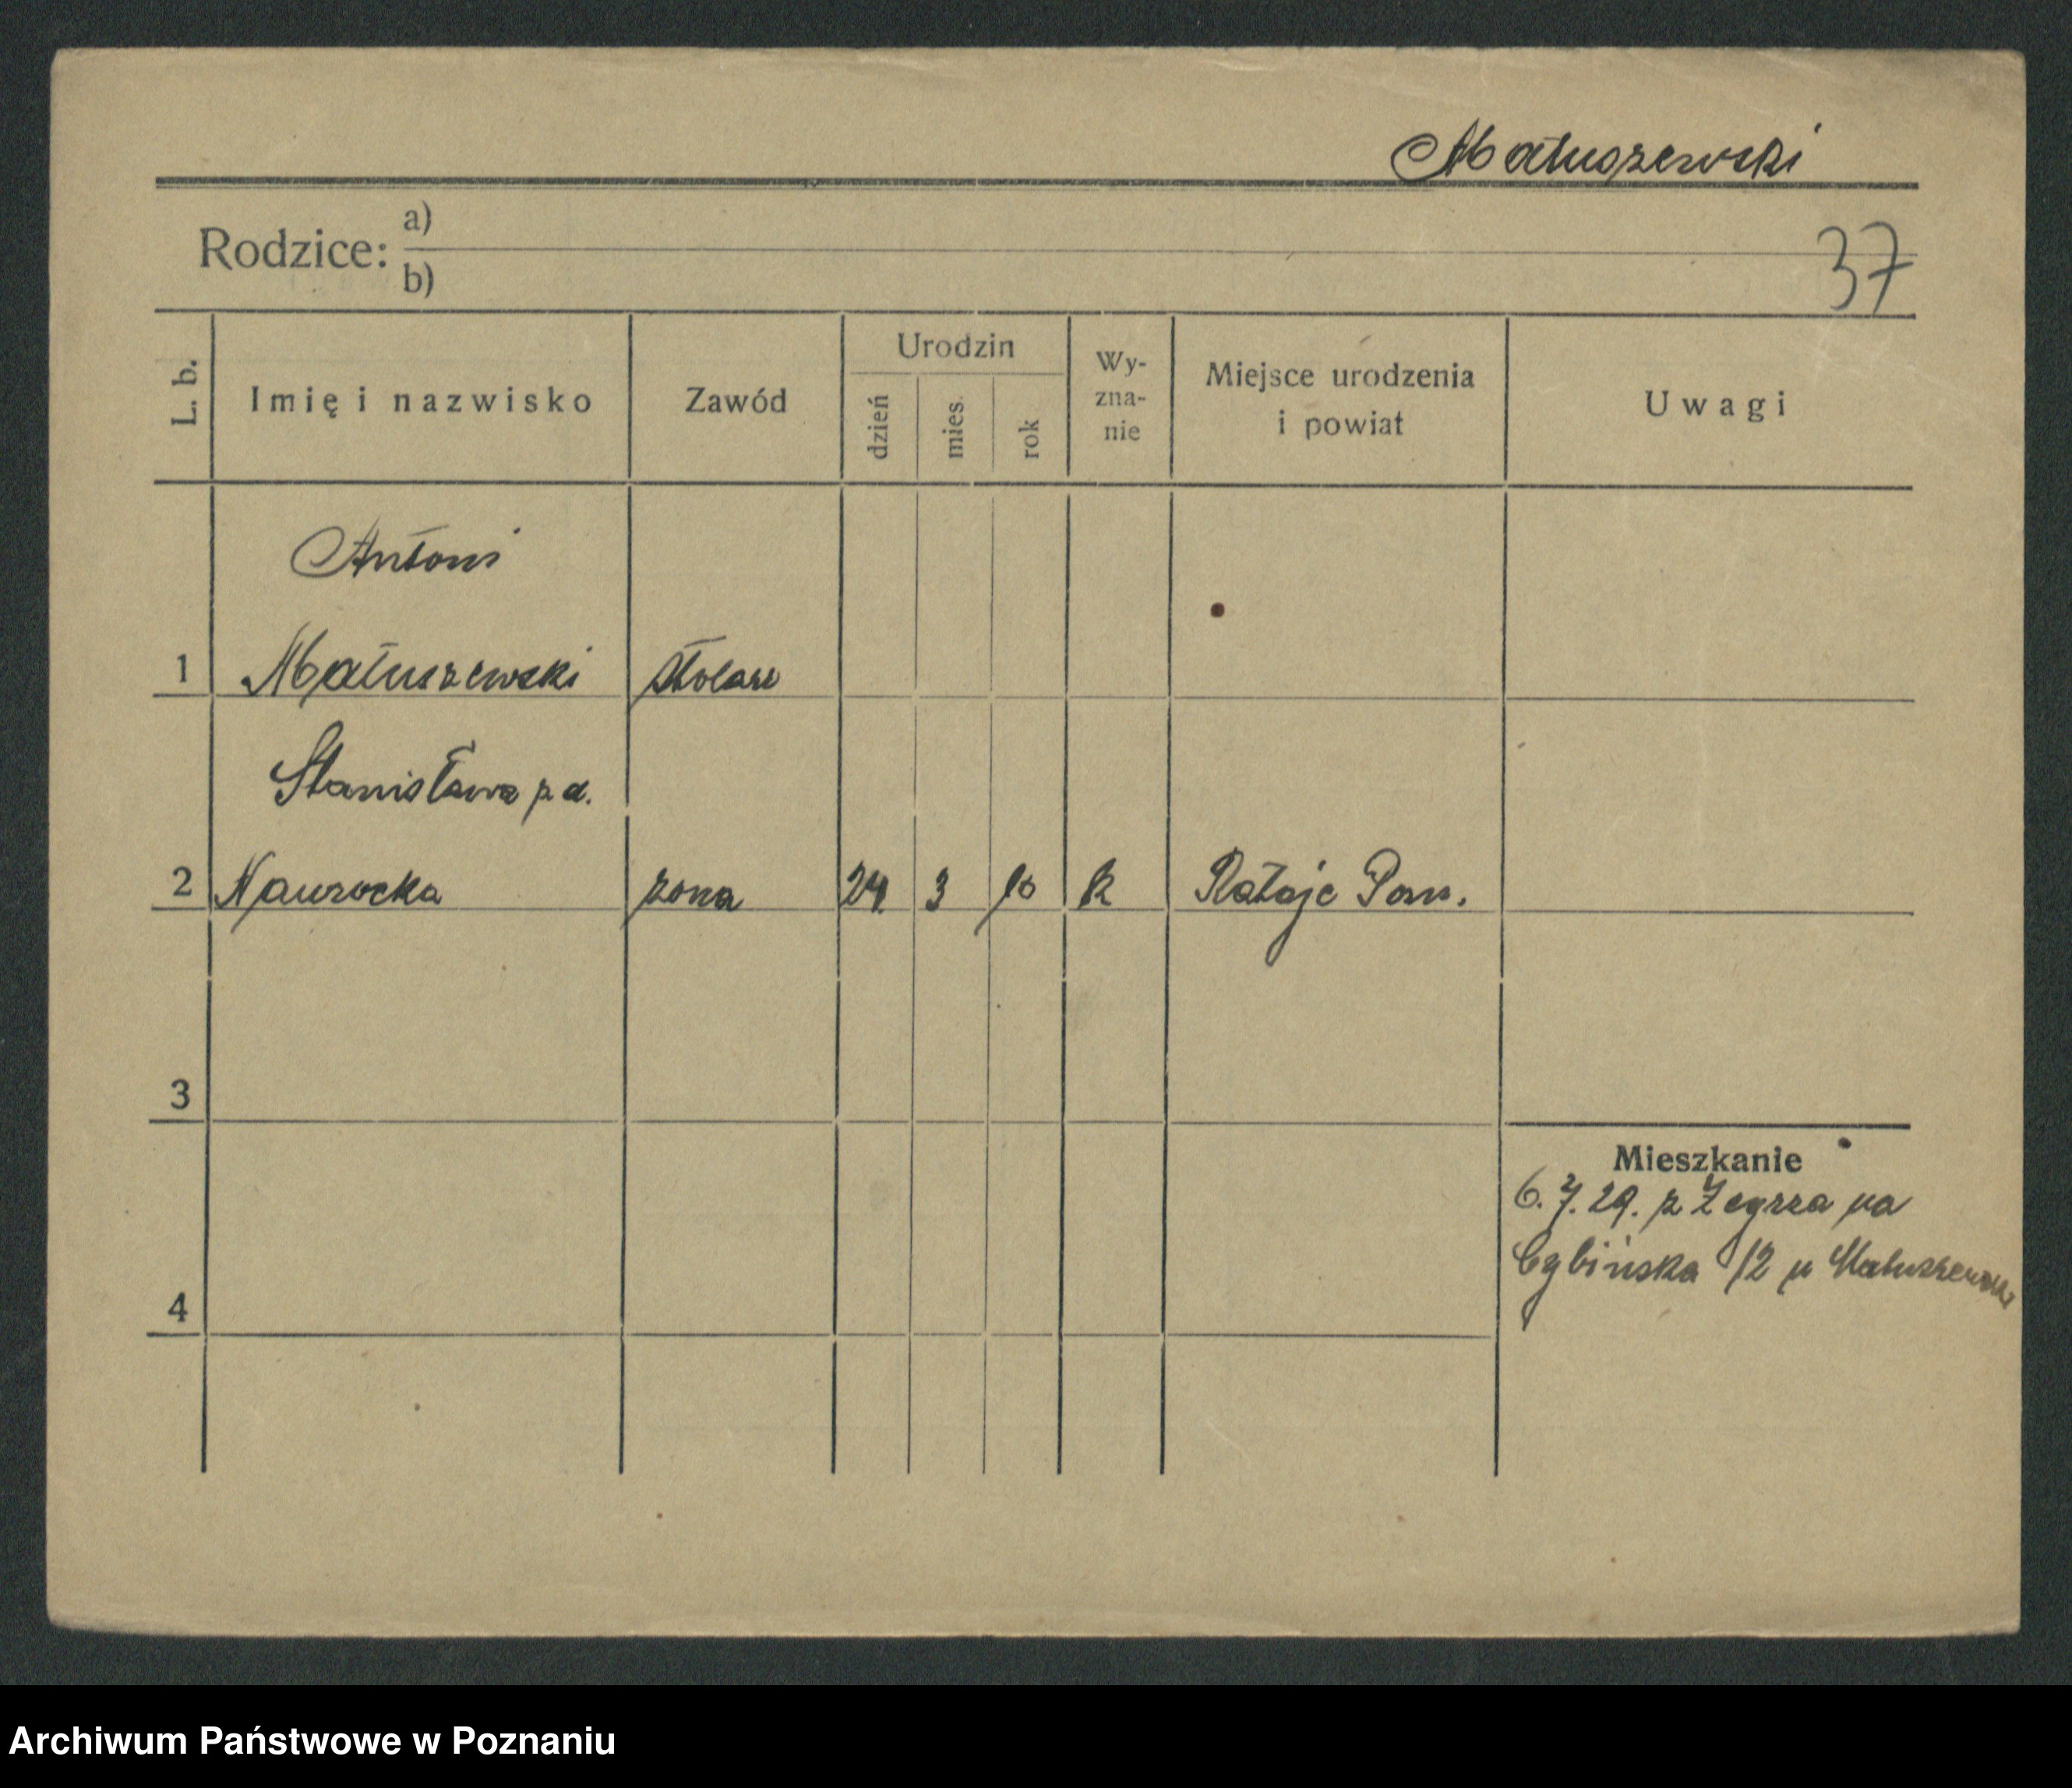 Matuszewski
Rodzice: a)
b)
37
L. b.
Imię i nazwisko
Zawód
Urodzin
dzień
mies.
rok
Wy-
zna-
nie
Miejsce urodzenia
i powiat
Uwagi
Antoni
1 Matuszewski stolarz
Stanisława z d.
2 Nawrocka żona 24 3 10 k Rataje Pozn.
3
Mieszkanie
6. 7. 29. z Żegrza na
Cybińska 12 u Matuszewski
4
Archiwum Państwowe w Poznaniu